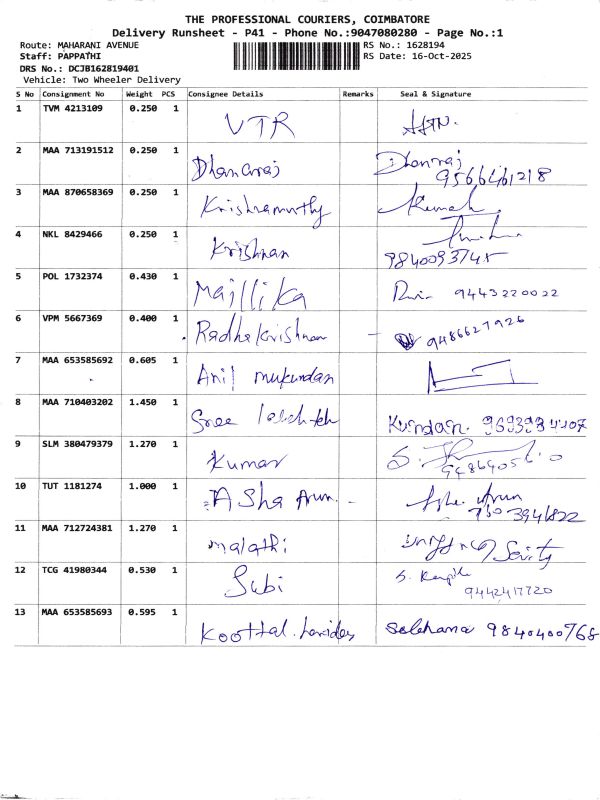 THE PROFESSIONAL COURIERS, COIMBATORE
Delivery Runsheet - P41 - Phone No.:9047080280 - Page No.:1
Route: MAHARANI AVENUE RS No.: 1628194
Staff: PAPPATHI RS Date: 16-Oct-2025
DRS No.: DCJB162819401
Vehicle: Two Wheeler Delivery
S No Consignment No Weight PCS Consignee Details Remarks Seal & Signature
1 TVM 4213109 0.250 1 VTR
2 MAA 713191512 0.250 1 Dhanaraj Dhanraj
9566461218
3 MAA 870658369 0.250 1 Krishnamurthy Kumah
4 NKL 8429466 0.250 1 Krishnan
9840093745
5 POL 1732374 0.430 1 Maillika 9443220022
6 VPM 5667369 0.400 1 Radhakrishnan 9486627926
7 MAA 653585692 0.605 1 Anil mukundan
8 MAA 710403202 1.450 1 Sree Kundan
9 SLM 380479379 1.270 1 Kumar
10 TUT 1181274 1.000 1 Asha Arun. Arun
11 MAA 712724381 1.270 1 malathi
12 TCG 41980344 0.530 1 Subi
9442417720
13 MAA 653585693 0.595 1 Koottal 9840400768